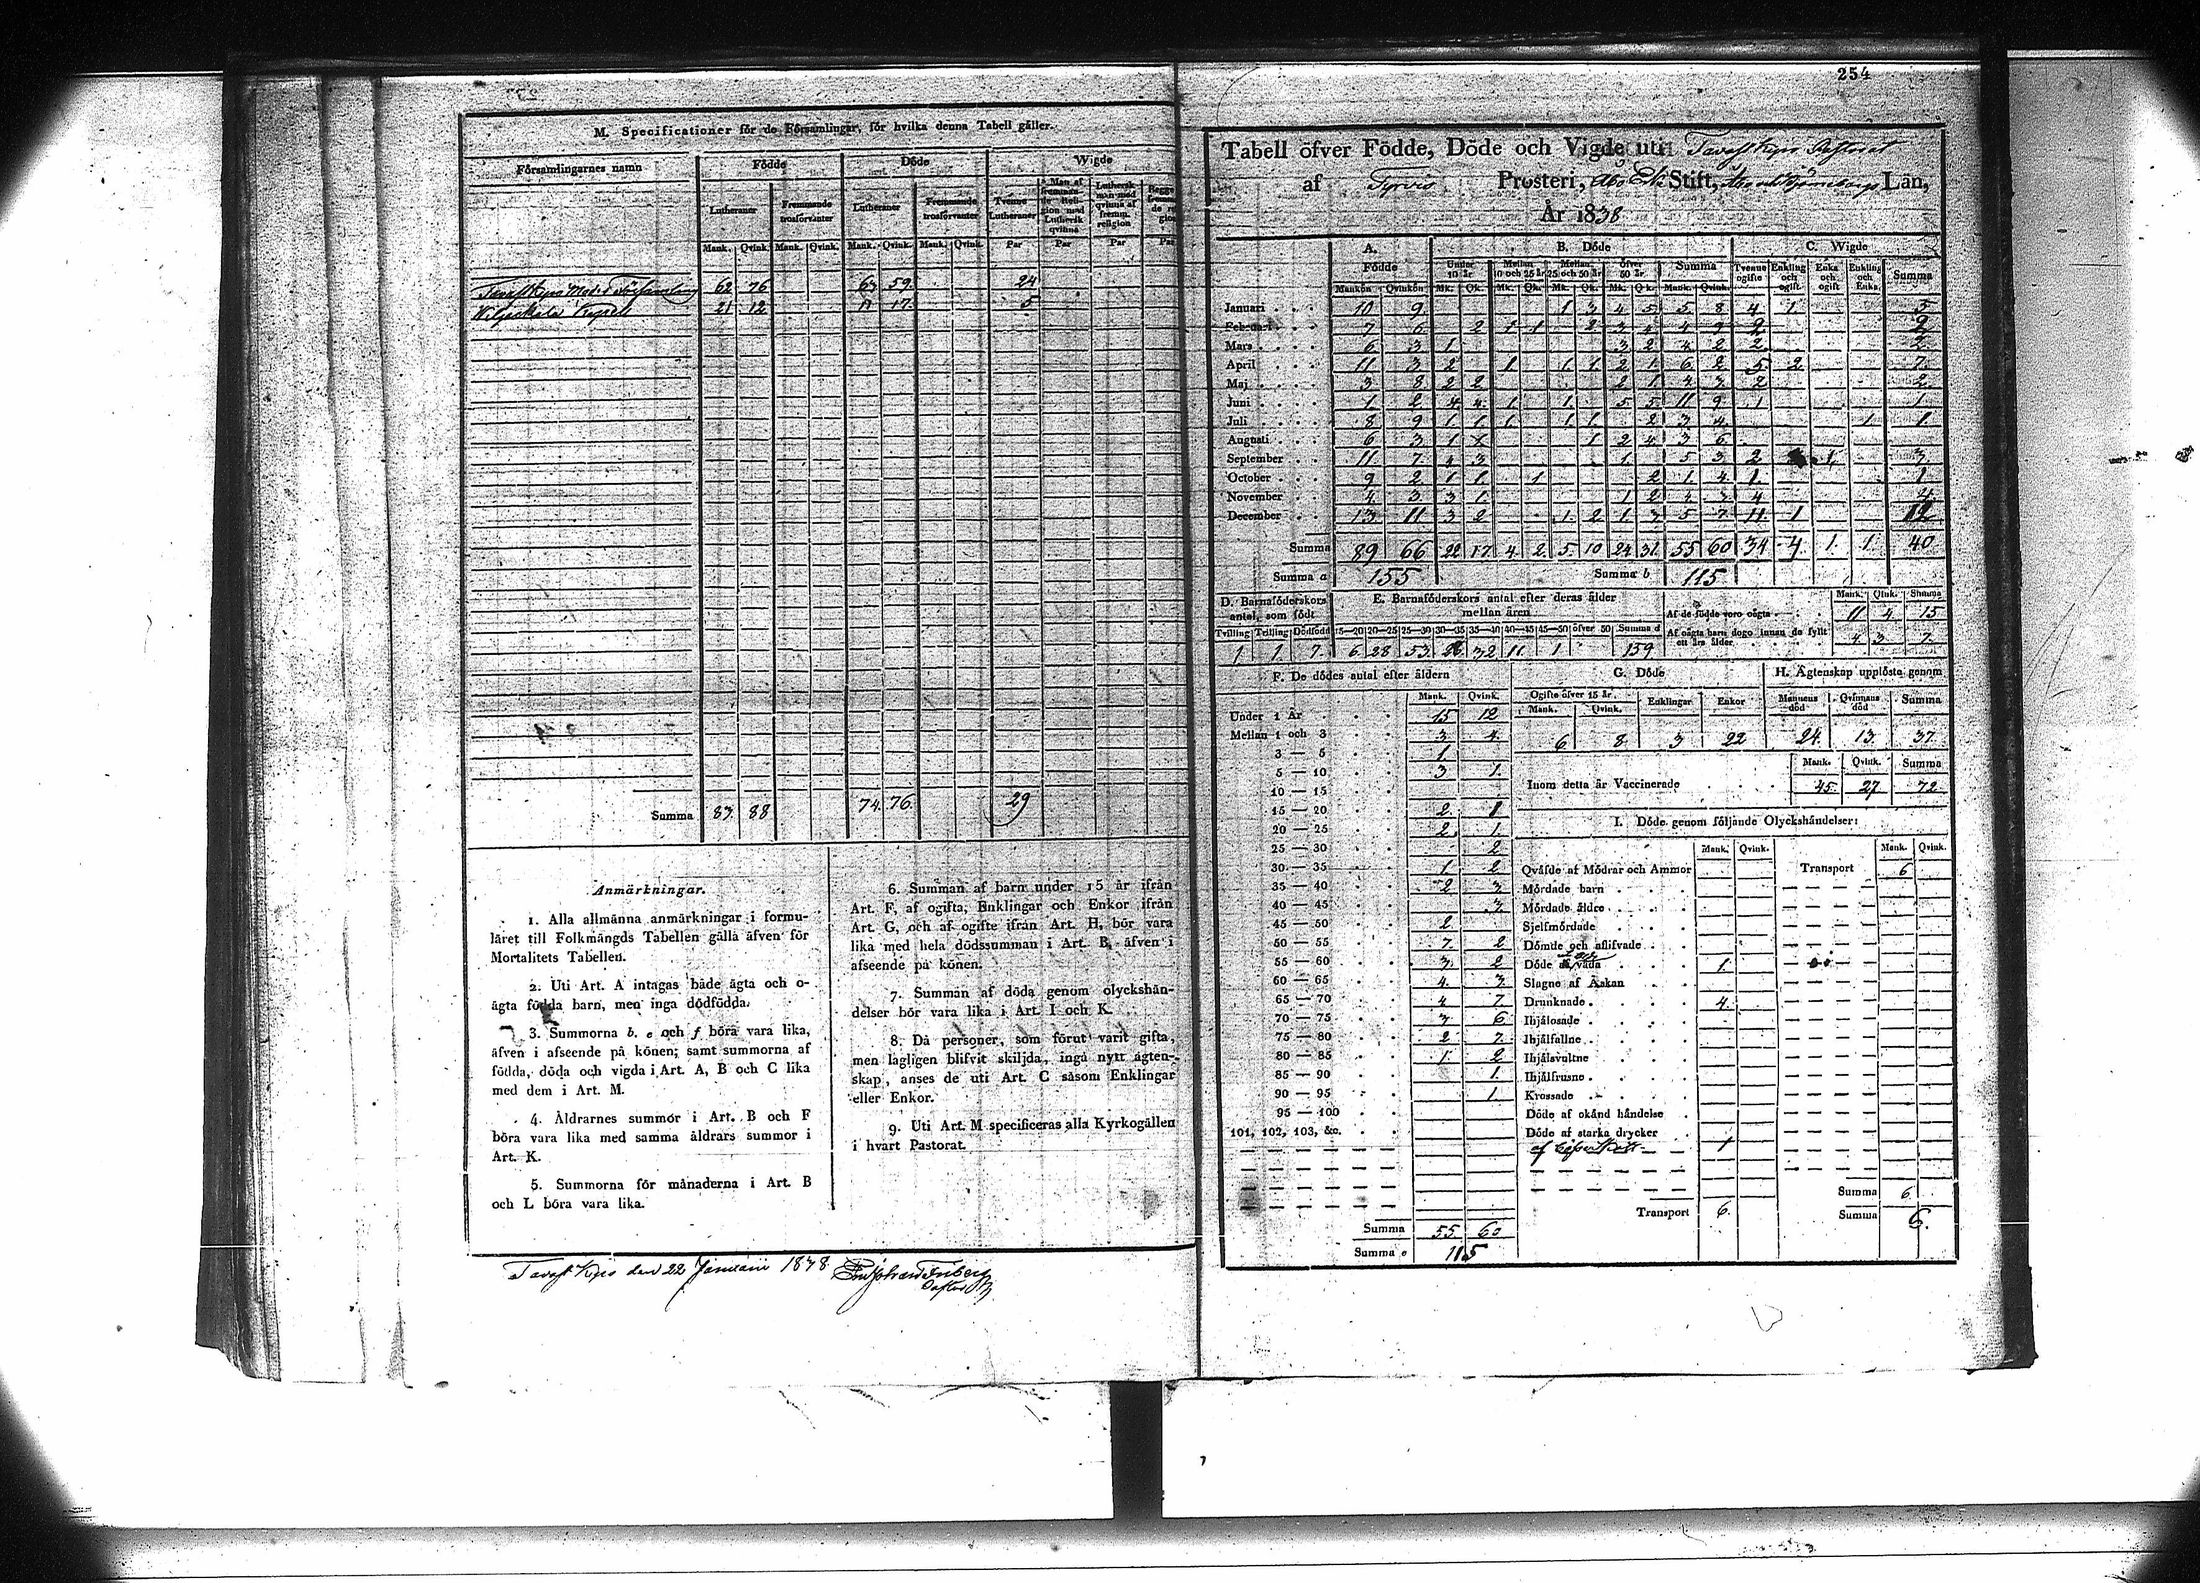 M. Specificationer för de Församlingar, för hvilka denna Tabell gäller.
Församlingarnes namn Födde Döde Wigde
Lutheraner Fremmande trosförvanter Lutheraner Fremmande trosförvanter Tvenne Lutheraner
Mank. Qvink. Mank. Qvink. Mank. Qvink. Mank. Qvink. Par Par Par Par
62 76 59. 24
Kapell 21 12 17. 5
Summa 83 88 74. 76 29
Anmärkningar.
1. Alla allmänna anmärkningar i formu-
läret till Folkmängds Tabellen gälla äfven för
Mortalitets Tabellen.
2. Uti Art. A intagas både ägta och o-
ägta födda barn, men inga dödfödda.
3. Summorna b. e och f böra vara lika,
äfven i afseende på könen; samt summorna af
födda, döda och vigda i Art. A, B och C lika
med dem i Art. M.
4. Åldrarnes summor i Art. B och F
böra vara lika med samma åldrars summor i
Art. K.
5. Summorna för månaderna i Art. B
och L böra vara lika.
6. Summan af barn under 15 år ifrån
Art. F, af ogifta, Enklingar och Enkor ifrån
Art. G, och af ogifte ifrån Art. H, bör vara
lika med hela dödssumman i Art. B, äfven i
afseende på könen.
7. Summan af döda genom olyckshän-
delser bör vara lika i Art. I och K.
8. Då personer, som förut varit gifta,
men lagligen blifvit skiljda, ingå nytt ägten-
skap, anses de uti Art. C såsom Enklingar
eller Enkor.
9. Uti Art. M specificeras alla Kyrkogällen
i hvart Pastorat.
den 22 Januari 1838
254
Tabell öfver Födde, Döde och Vigde uti Pastorat
af Tyrvis Prosteri, Åbo Stift, Län,
År 1838
A. Födde B. Döde C. Wigde
Under 10 år. Mellan 10 och 25 år Mellan 25 och 50 år Öfver 50 år. Summa Tvenne ogifte Enkling och ogift Enka och ogift Enkling och Enka. Summa
Mankön Qvinkön Mk. Qk. Mk. Qk. Mk. Qk. Mk. Qk. Mank. Qvink.
Januari 10 9 1 3 4 5 5 8 4 1 5
Februari 7 6 2 1 1 2 3 4 4 9 2 2
Mars 6 3 1 3 2 4 2 2 2
April 11 3 2 1 1 1 2 1 6 2 5 2 7
Maj 3 8 2 2 2 1 4 3 2 2
Juni 1 2 4 4 1 1 5 5 11 9 1 1
Juli 8 9 1 1 1 1 1 2 3 4 1 1
Augusti 6 3 1 1 2 4 3 6
September 11 7 4 3 1 5 3 2 1 3
October 9 2 1 1 1 2 1 4 1 1
November 4 3 3 1 1 2 4 3 4 4
December 13 11 3 2 1 2 1 3 5 7 11 1 12
Summa 89 66 22 17 4 2 5 10 24 31 55 60 34 4 1 1 40
Summa a 155 Summa b 115
D. Barnaföderskors antal, som födt E. Barnaföderskors antal efter deras ålder mellan åren
Mank. Qink. Summa
Af de födde voro oägta 11 4 15
Af oägta barn dogo innan de fyllt ett års ålder 4 3 7
Tvilling Trilling Dödfödd 15—20 20—25 25—30 30—35 35—40 40—45 45—50 öfver 50 Summa d
1 1 7 6 28 53 32 11 1 159
F. De dödes antal efter åldern
Mank. Qvink.
Under 1 År 15 12
Mellan 1 och 3 3 4
3 — 5 1
5 — 10 3 1
10 — 15
15 — 20 2
20 — 25 2 1
25 — 30 2
30 — 35 1 2
35 — 40 2 3
40 — 45 3
45 — 50 2
50 — 55 7 2
55 — 60 3 2
60 — 65 4 3
65 — 70 4 7
70 — 75 3 6
75 — 80 2 7
80 — 85 1 2
85 — 90 1
90 — 95 1
95 — 100
101, 102, 103, &c.
Summa 55 60
Summa e 115
G. Döde
Ogifte öfver 15 år. Enklingar Enkor
Mank. Qvink.
6 8 3 22
H. Ägtenskap upplösta genom
Mannens död Qvinnans död Summa
24 13 37
Mank. Qvink. Summa
Inom detta år Vaccinerade 45 27 72
I. Döde genom följande Olyckshändelser:
Mank. Qvink. Transport Mank. Qvink.
Qväfde af Mödrar och Ammor 6
Mördade barn
Mördade äldre
Sjelfmördade
Dömde och aflifvade
Döde af våda 1
Slagne af Åskan
Drunknade 4
Ihjälosade
Ihjälfallne
Ihjälsvultne
Ihjälfrusne
Krossade
Döde af okänd händelse
Döde af starka drycker
af 1
Transport 6
Summa 6
Summa 6.